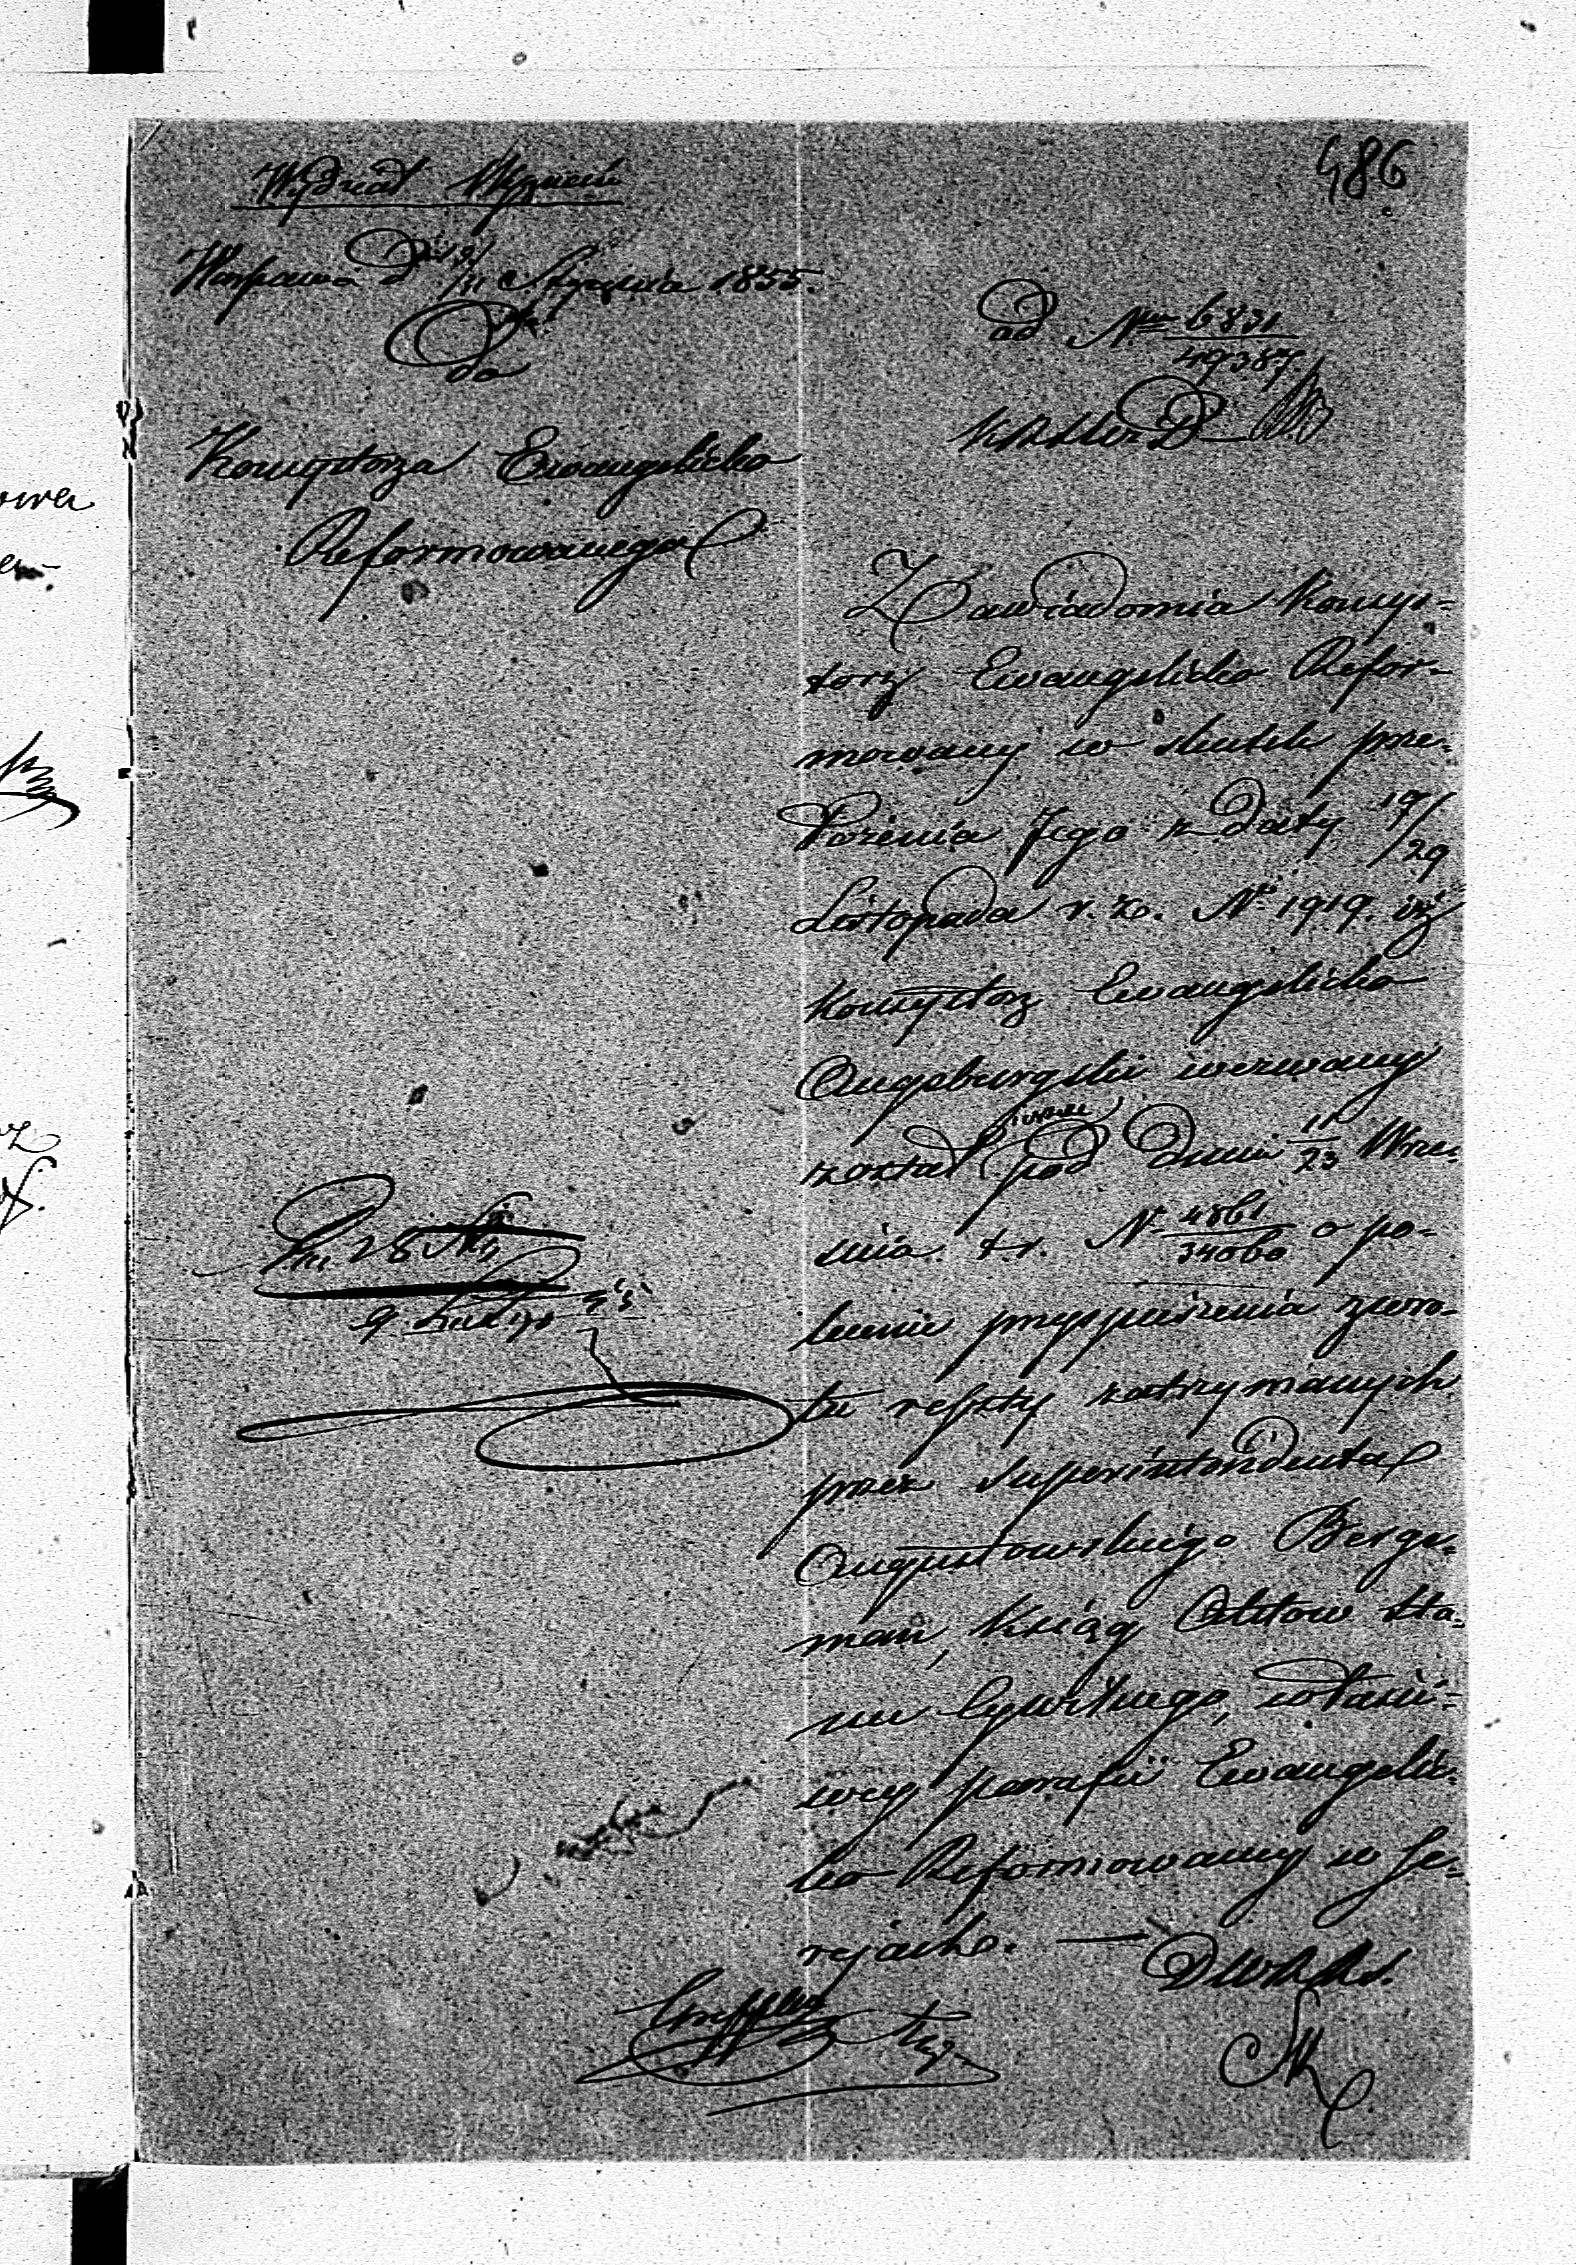 486
Wydział Wyznań
Warszawa d 19/31 Stycznia 1855.
Do
Konsystorza Ewangelicko
Reformowanego
ad Nrum 6831/49387.
Zawiadomia Konsys-
torz Ewangelicko Refor-
mowany w skutek prze-
łożenia Jego z daty 17/29
Listopada r. z. Nr 1919. iż
Konsystorz Ewangelicko
Augsburgski wezwany
został pod dniem 11/23 Wrze-
śnia t. r. N 4861/34060 o po-
lecenie przyspieszenia zwro-
tu reszty zatrzymanych
przez Superintendenta
Augustowskiego Berge-
man, Ksiąg Aktów Sta-
nu Cywilnego, właści-
wey parafii Ewangelic-
ko Reformowaney w Se-
rejach. —
9 Lutego